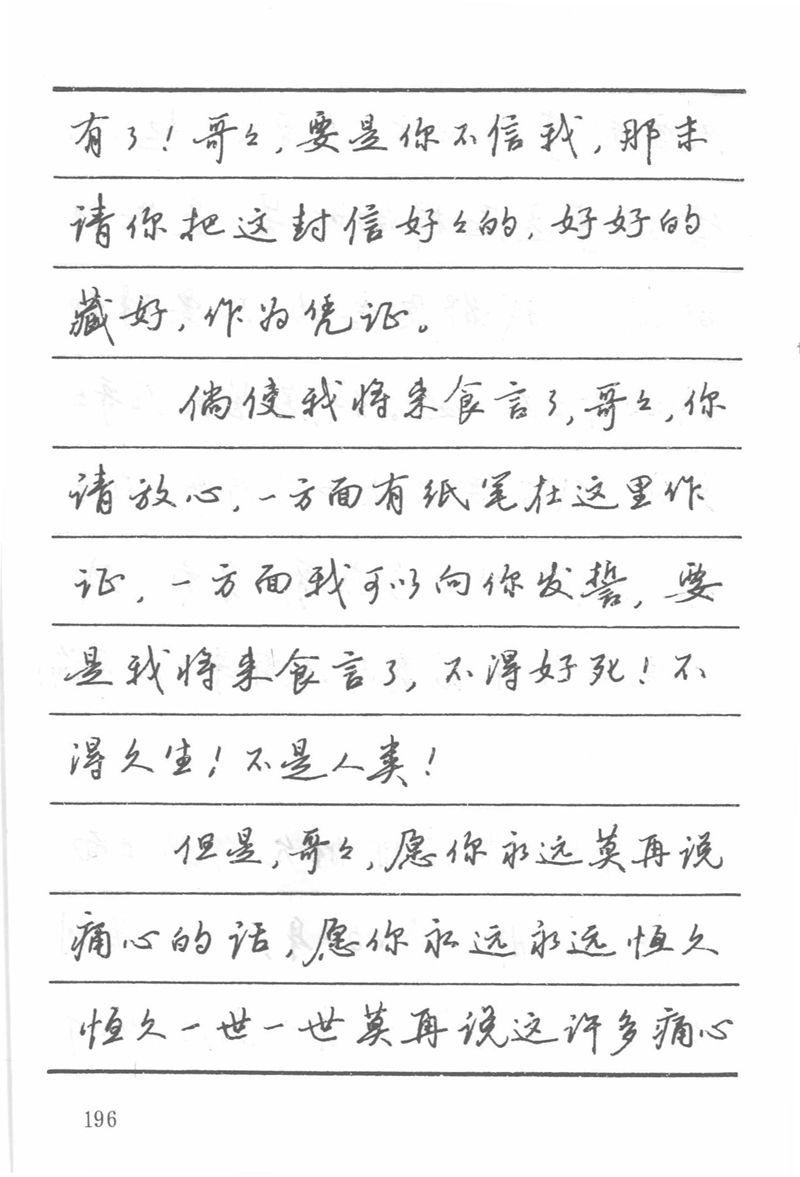 有了！哥々，要是你不信我，那末
请你把这封信好々的，好好的
藏好，作为凭证。
倘使我将来食言了，哥々，你
请放心，一方面有纸笔在这里作
证，一方面我可以向你发誓，要
是我将来食言了，不得好死！不
得久生！不是人类！
但是，哥々，愿你永远莫再说
痛心的话，愿你永远永远恒久
恒久一世一世莫再说这许多痛心
196